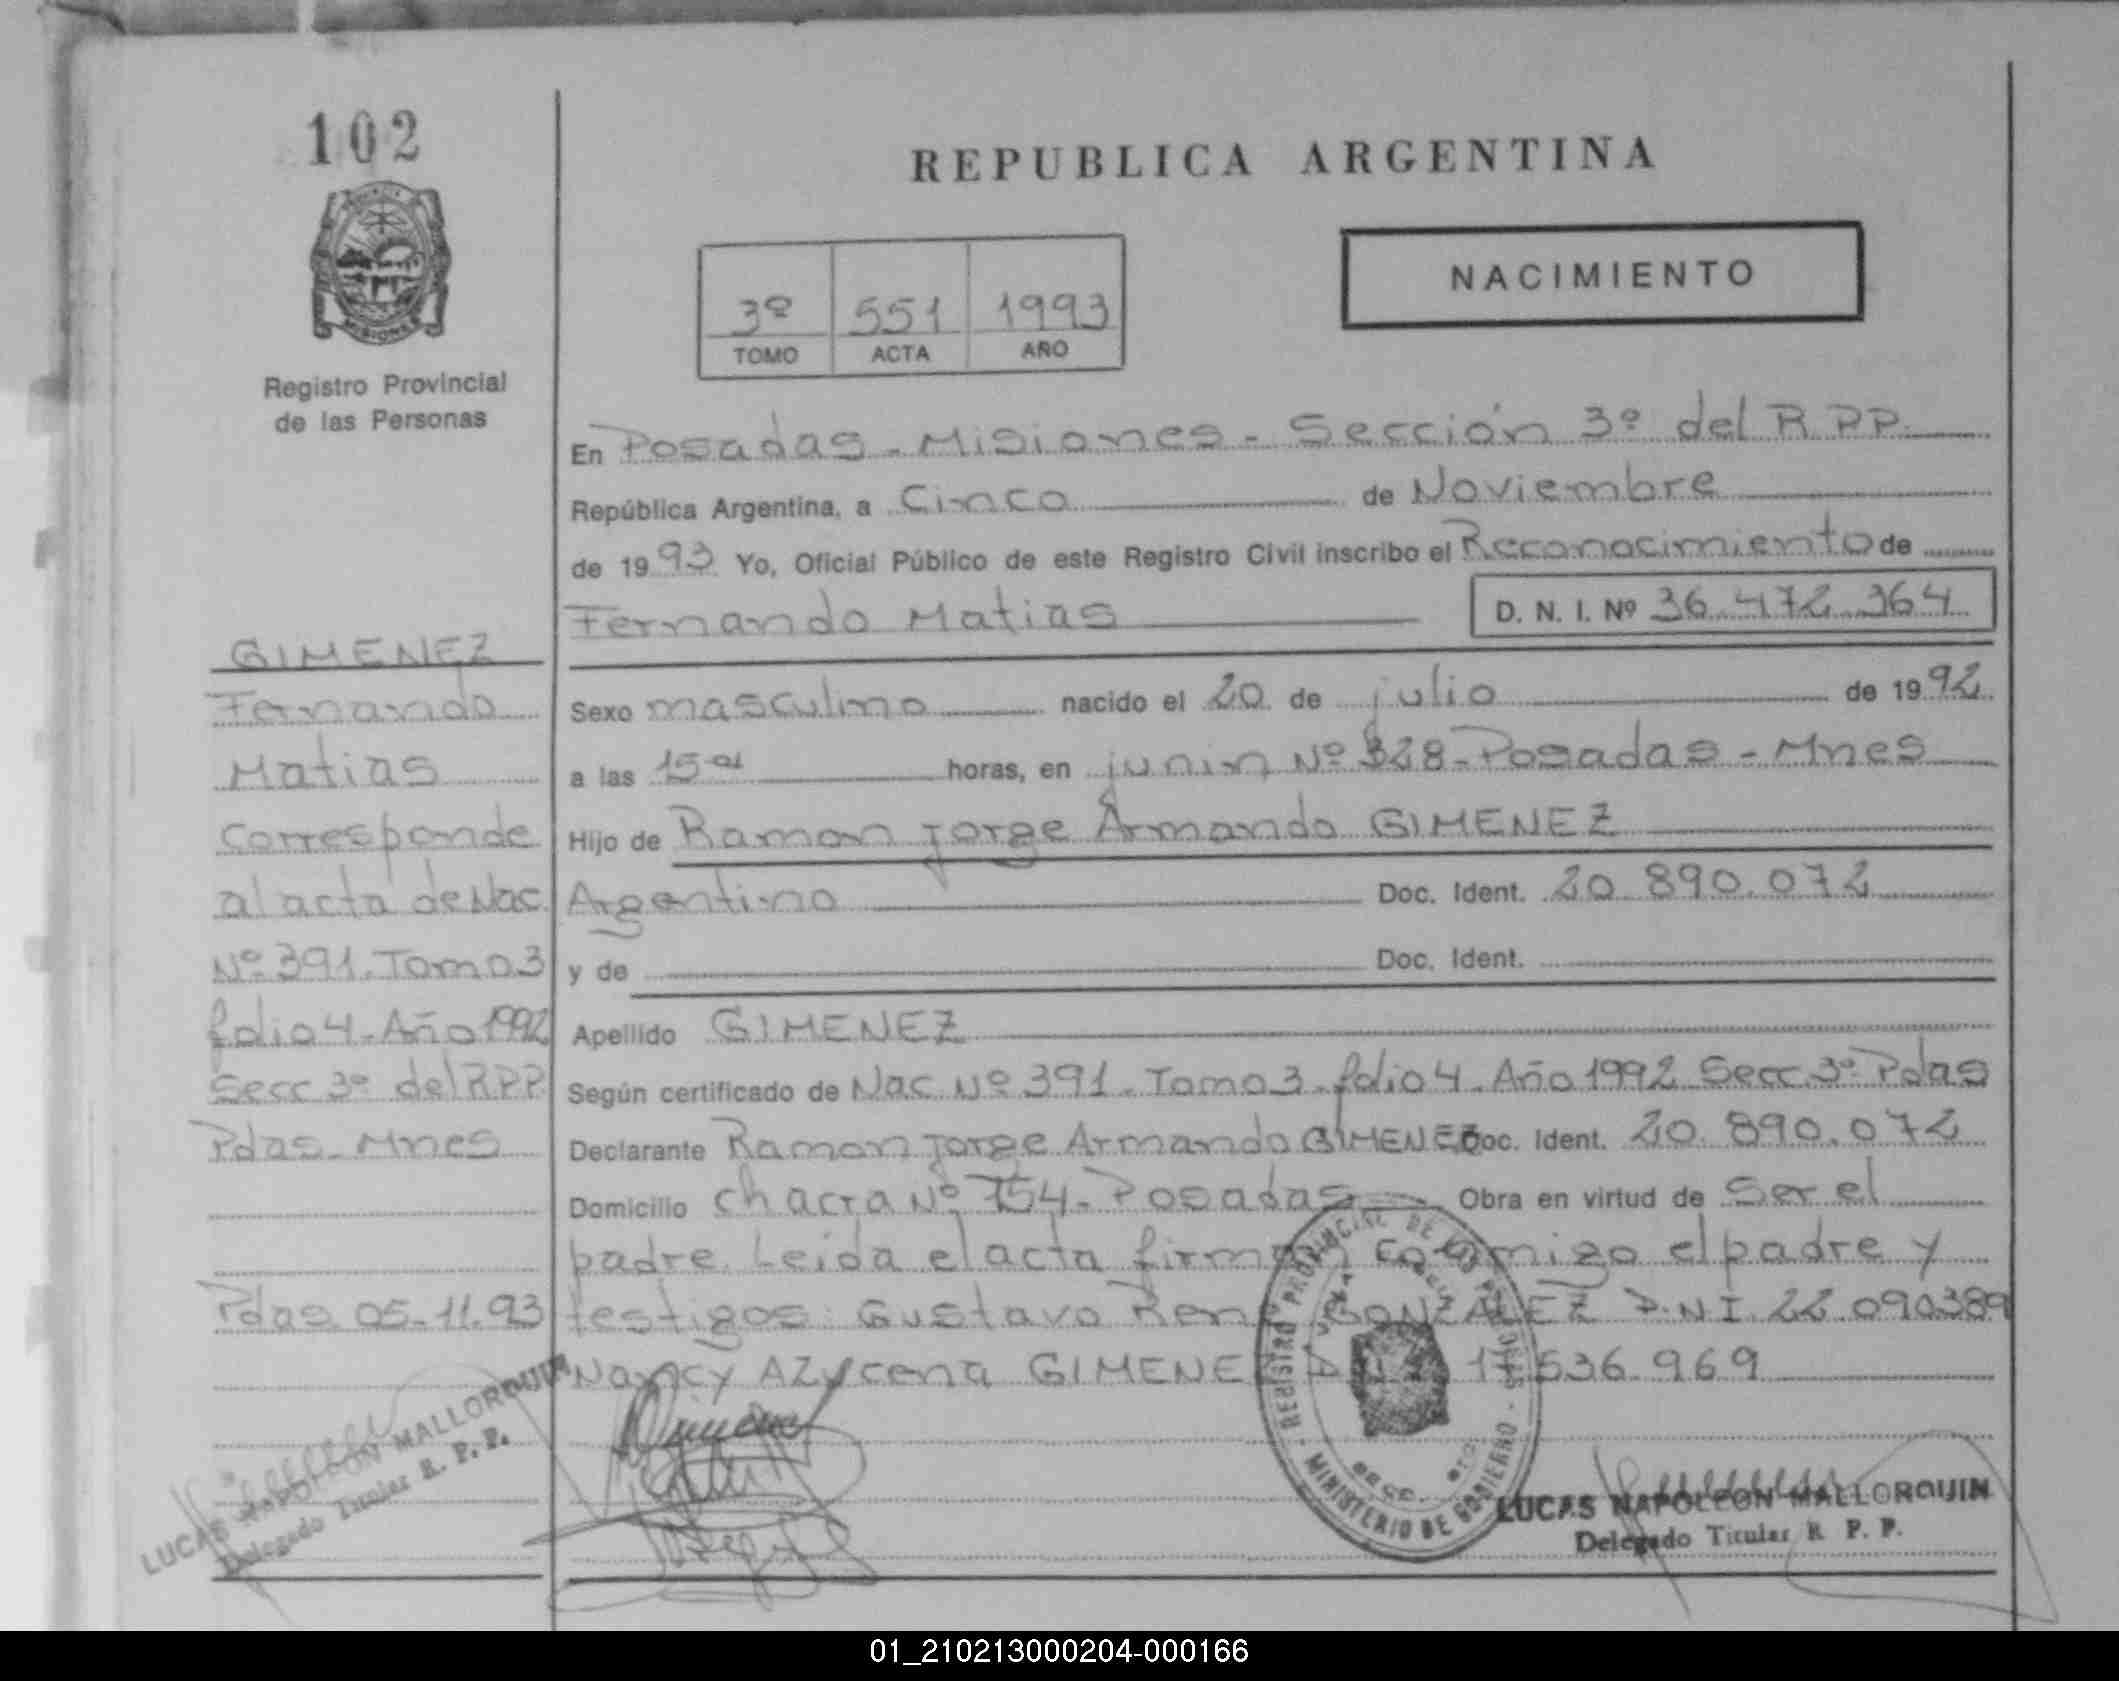 102
REPUBLICA ARGENTINA
NACIMIENTO
3º 551 1993
TOMO ACTA AÑO
MISIONES
Registro Provincial
de las Personas
En Posadas - Misiones - Sección 3º del R.P.P.
República Argentina, a Cinco de Noviembre
de 1993 Yo, Oficial Público de este Registro Civil inscribo el Reconocimiento de
Fernando Matias D. N. I. Nº 36.472.364
Sexo masculino nacido el 20 de julio de 1992
a las 15 horas, en junin Nº 328 - Posadas - Mnes
Hijo de Ramon Jorge Armando GIMENEZ
Argentino Doc. Ident. 20.890.072
y de Doc. Ident.
Apellido GIMENEZ
Según certificado de Nac Nº 391 - Tomo 3 - folio 4 - Año 1992 Secc. 3º Pdas
Declarante Ramon Jorge Armando GIMENEZ Doc. Ident. 20.890.072
Domicilio chacra Nº 154 - Posadas Obra en virtud de Ser el
padre. Leida el acta firman conmigo el padre y
testigos: Gustavo René GONZALEZ D.N.I. 22.090389
Nancy Azucena GIMENEZ 17.536.969
GIMENEZ
Fernando
Matias
Corresponde
al acta de Nac
Nº 391. Tomo 3
folio 4 - Año 1992
Secc 3º del R.P.P.
Pdas - Mnes
Pdas 05-11-93
LUCAS NAPOLEON MALLORQUIN
Delegado Titular R. P. P.
REGISTRO PROVINCIAL DE LAS PERSONAS - MINISTERIO DE GOBIERNO -
LUCAS NAPOLEON MALLORQUIN
Delegado Titular R. P. P.
01_210213000204-000166